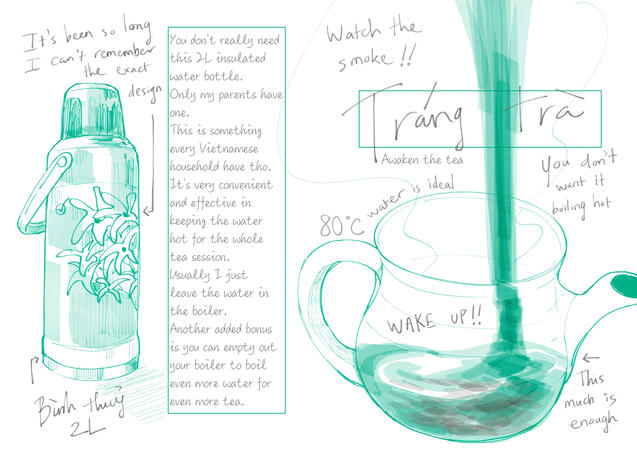 It's been so long
I can't remember
the exact
design
You don't really need
this 2L insulated
water bottle.
Only my parents have
one.
This is something
every Vietnamese
household have tho.
It's very convenient
and effective in
keeping the water
hot for the whole
tea session.
Usually I just
leave the water in
the boiler.
Another added bonus
is you can empty out
your boiler to boil
even more water for
even more tea.
Bình thuỷ
2L
Watch the
smoke !!
Tráng Trà
Awaken the tea
80°C water is ideal
You don't
want it
boiling hot
WAKE UP!!
This
much is
enough